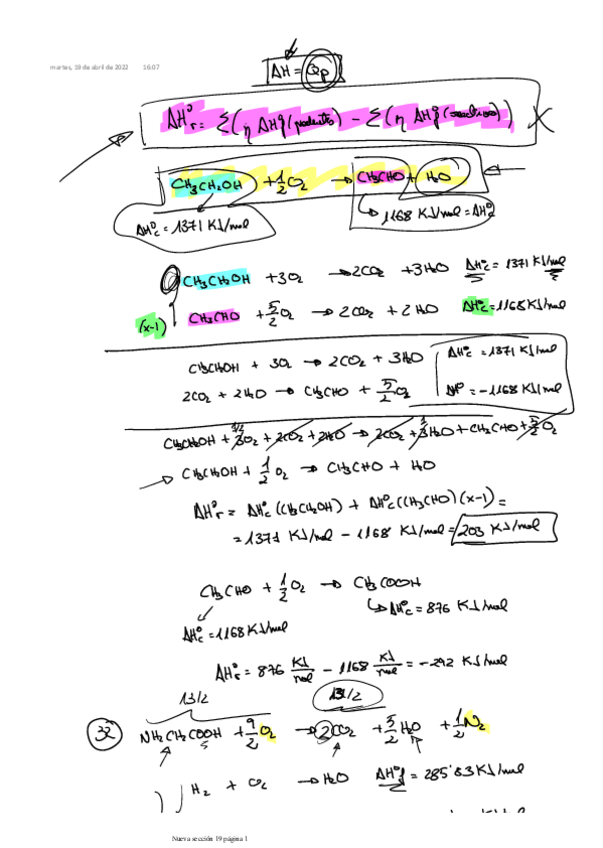 martes, 19 de abril de 2022 16:07
ΔH = Qp
ΔH°r = Σ(η ΔH°f (productos) - Σ(η ΔH°f (reactivos))
CH3CH2OH + 1/2 O2 → CH3CHO + H2O
ΔH°c = 1371 KJ/mol
1168 KJ/mol = ΔH°c
CH3CH2OH + 3O2 → 2CO2 + 3H2O ΔH°c = 1371 KJ/mol
(x-1) CH3CHO + 5/2 O2 → 2CO2 + 2H2O ΔH°c = 1168 KJ/mol
CH3CH2OH + 3O2 → 2CO2 + 3H2O ΔH°c = 1371 KJ/mol
2CO2 + 2H2O → CH3CHO + 5/2 O2 ΔH° = -1168 KJ/mol
CH3CH2OH + 3O2 + 2CO2 + 2H2O → 2CO2 + 3H2O + CH3CHO + 5/2 O2
CH3CH2OH + 1/2 O2 → CH3CHO + H2O
ΔH°r = ΔH°c (CH3CH2OH) + ΔH°c (CH3CHO) (x-1) =
= 1371 KJ/mol - 1168 KJ/mol = 203 KJ/mol
CH3CHO + 1/2 O2 → CH3COOH
ΔH°c = 876 KJ/mol
ΔH°c = 1168 KJ/mol
ΔH°r = 876 KJ/mol - 1168 KJ/mol = -292 KJ/mol
13/2 13/2
32 NH2CH2COOH + 9/2 O2 → 2CO2 + 5/2 H2O + 1/2 N2
H2 + O2 → H2O ΔH°f = 285'83 KJ/mol
Nueva sección 19 página 1